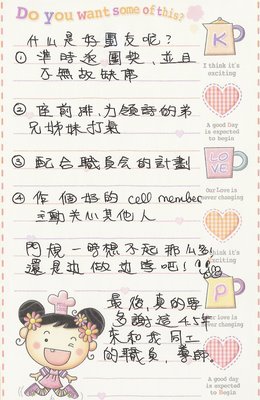 Do you want some of this?
什么是好團友呢?
① 準時返團契,並且
不無故缺席
K
I think it's
exciting
② 座前排,为領詩的弟
兄姊妹打氣
A good Day
is expected
to begin
③ 配合職員会的計劃
LOVE
④ 作個好的 cell member
主動关心其他人
Our Love is
never changing
門規一時想不起那么多
還是边做边学吧!
It's
exciting
P
最後,真的要
多謝這4.5年
來和我同工
的職員,導師。
Our Love is
ever changing
A good day
is expected
to Begin